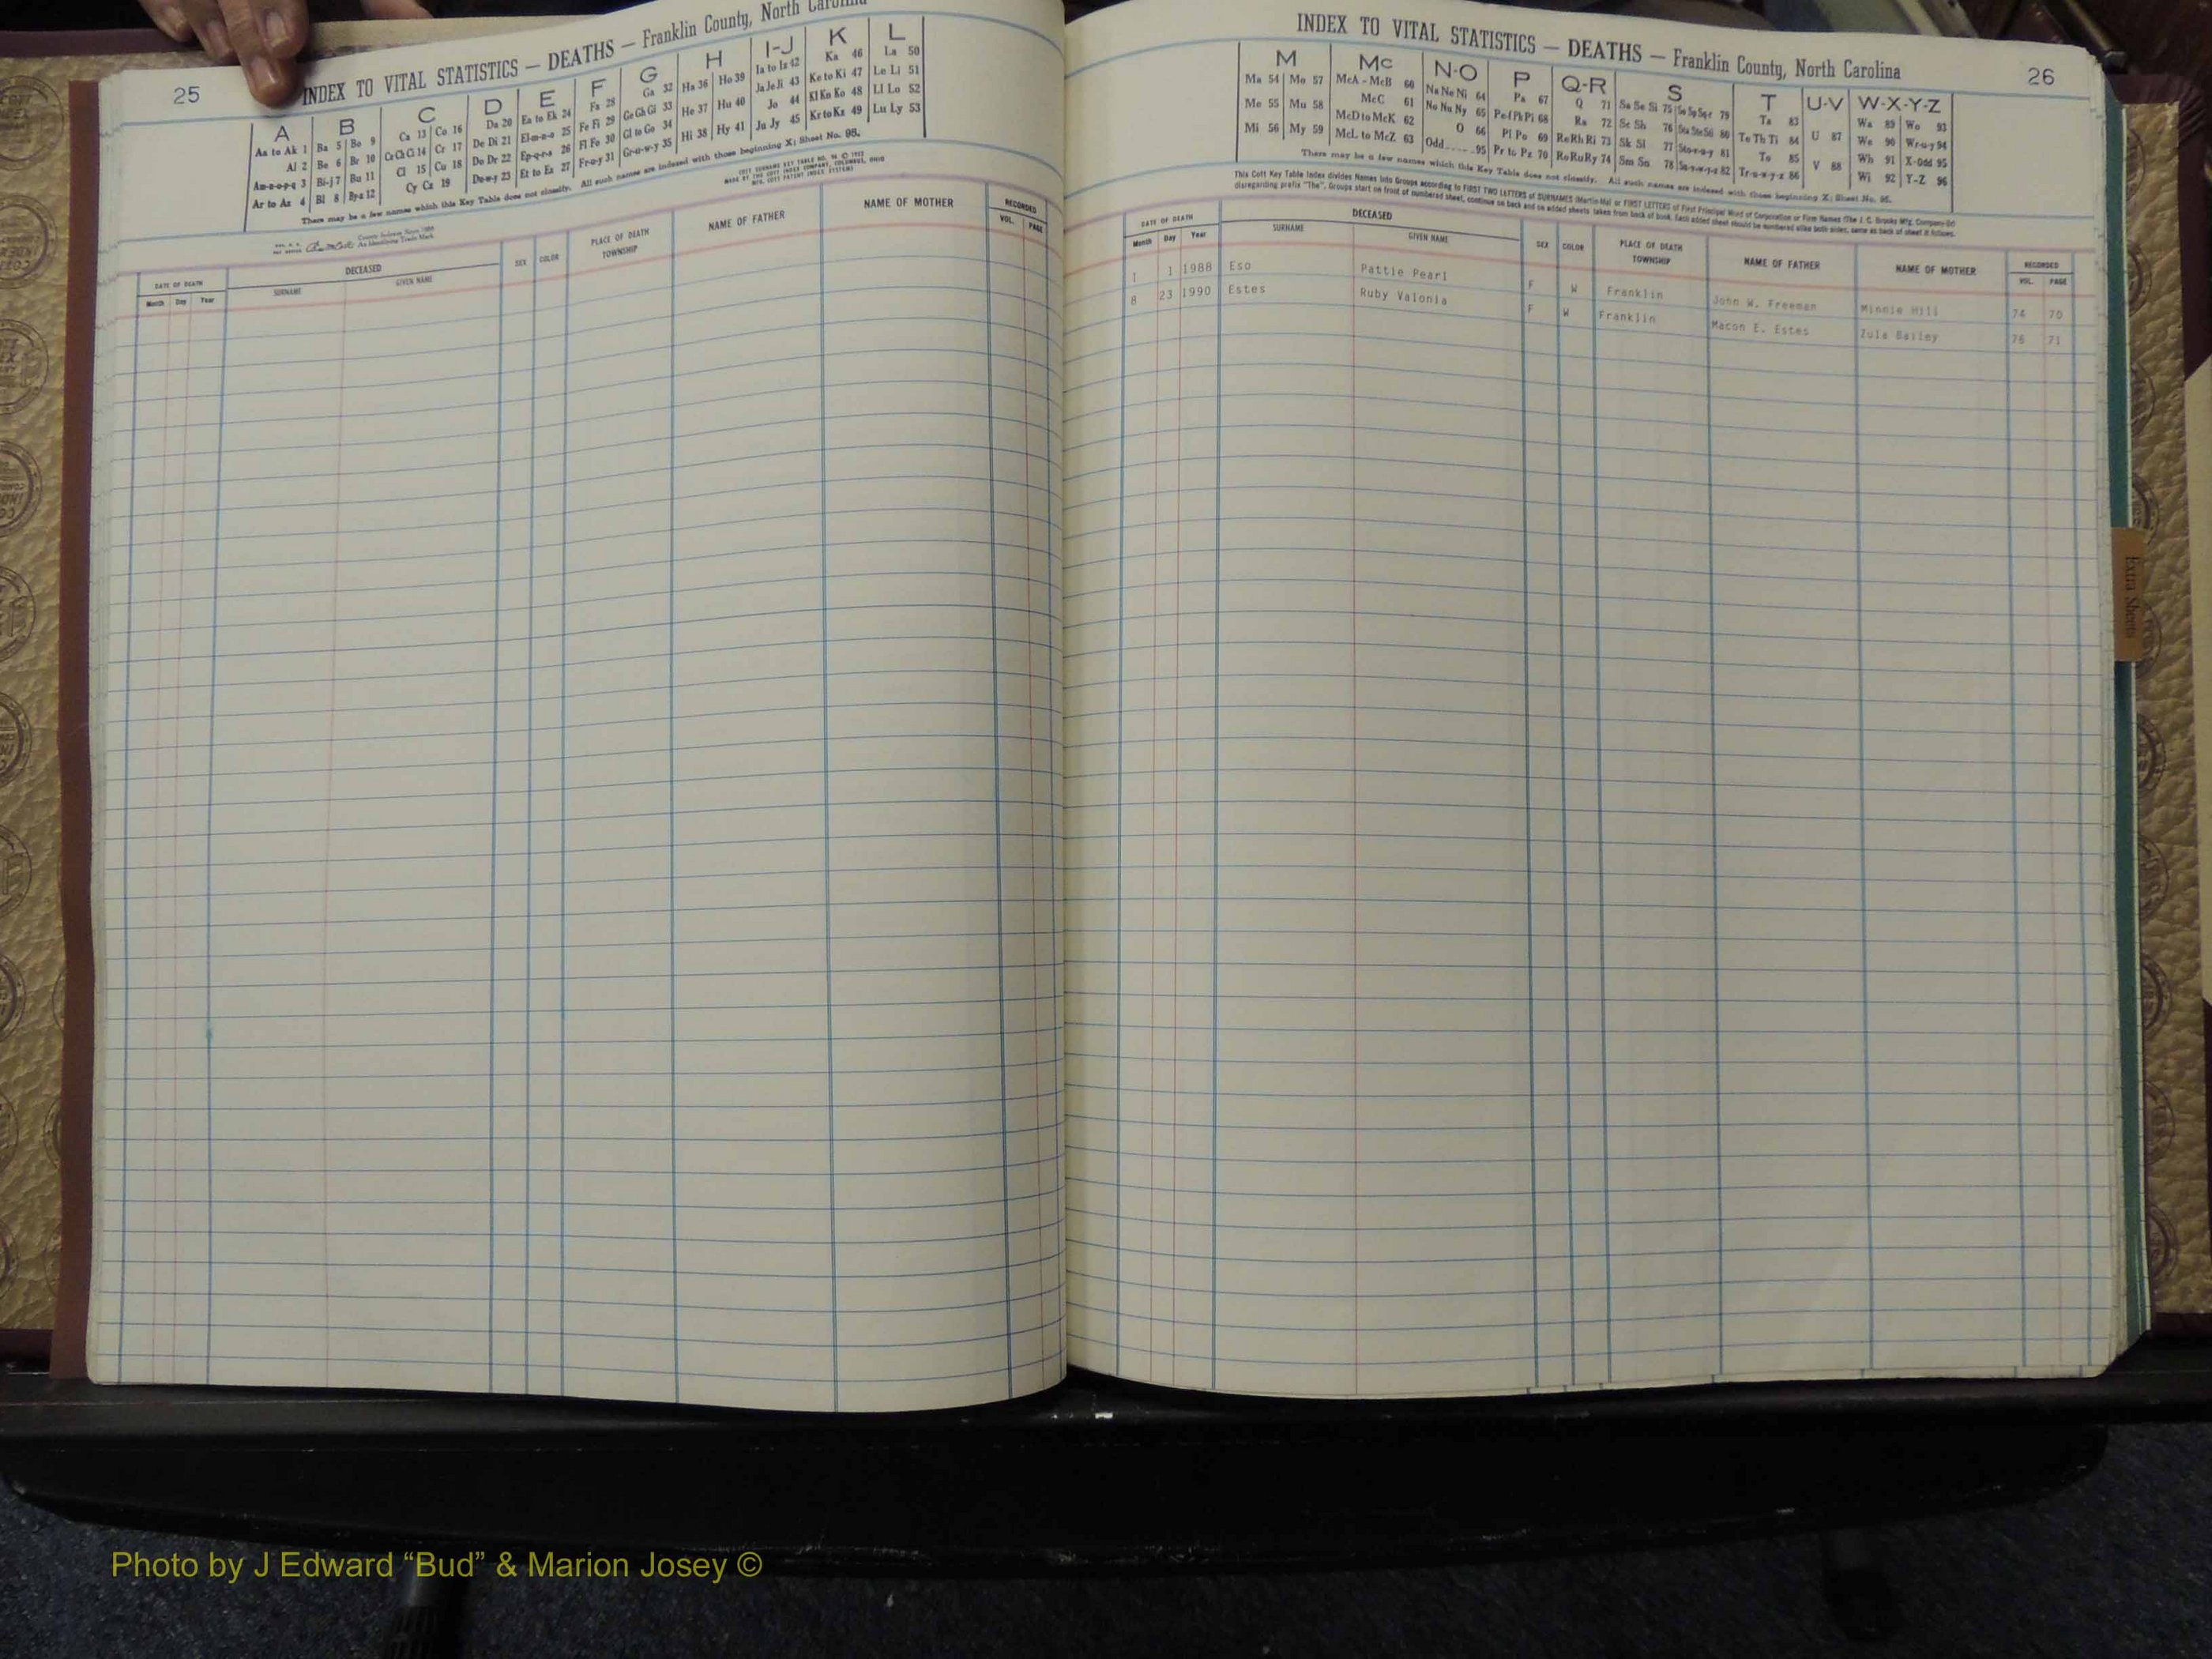 25
INDEX TO VITAL STATISTICS — DEATHS — Franklin County, North Carolina
A B C D E F G H I-J K L
Aa to Ak 1 Ba 5 Bo 9 Ca 13 Co 16 Da 20 Ea to Ek 24 Fa 28 Ga 32 Ha 36 Ho 39 Ia to Iz 42 Ka 46 La 50
Al 2 Be 6 Br 10 Ce Ch Ci 14 Cr 17 De Di 21 El-m-n-o 25 Fe Fi 29 Ge Gh Gi 33 He 37 Hu 40 Ja Je Ji 43 Ke to Ki 47 Le Li 51
Am-n-o-p-q 3 Bi-j 7 Bu 11 Cl 15 Cu 18 Do Dr 22 Ep-q-r-s 26 Fl Fo 30 Gl to Go 34 Hi 38 Hy 41 Jo 44 Kl Kn Ko 48 Ll Lo 52
Ar to Az 4 Bl 8 By-z 12 Cy Cz 19 Du-w-y 23 Et to Ez 27 Fr-u-y 31 Gr-u-w-y 35 Ju Jy 45 Kr to Kz 49 Lu Ly 53
There may be a few names which this Key Table does not classify. All such names are indexed with those beginning X; Sheet No. 95.
COTT SURNAME KEY TABLE NO. 96 © 1952
MADE BY THE COTT INDEX COMPANY, COLUMBUS, OHIO
MFG. COTT PATENT INDEX SYSTEMS
County Indexes Since 1888
An Identifying Trade Mark
DATE OF DEATH DECEASED SEX COLOR PLACE OF DEATH TOWNSHIP NAME OF FATHER NAME OF MOTHER RECORDED
Month Day Year SURNAME GIVEN NAME VOL. PAGE
INDEX TO VITAL STATISTICS — DEATHS — Franklin County, North Carolina
26
M Mc N-O P Q-R S T U-V W-X-Y-Z
Ma 54 Mo 57 McA - McB 60 Na Ne Ni 64 Pa 67 Q 71 Sa Se Si 75 So Sp Sq-r 79 Ta 83 U 87 Wa 89 Wo 93
Me 55 Mu 58 McC 61 No Nu Ny 65 Pe-f Ph Pi 68 Ra 72 Sc Sh 76 Sta Ste Sti 80 Te Th Ti 84 V 88 We 90 Wr-u-y 94
Mi 56 My 59 McD to McK 62 O 66 Pl Po 69 Re Rh Ri 73 Sk Sl 77 Sto-r-u-y 81 To 85 Wh 91 X-Odd 95
McL to McZ 63 Odd 95 Pr to Pz 70 Ro Ru Ry 74 Sm Sn 78 Su-v-w-y-z 82 Tr-u-w-y-z 86 Wi 92 Y-Z 96
There may be a few names which this Key Table does not classify. All such names are indexed with those beginning X; Sheet No. 95.
This Cott Key Table Index divides Names into Groups according to FIRST TWO LETTERS of SURNAMES (Martin-Ma) or FIRST LETTERS of First Principal Word of Corporation or Firm Names (The J. C. Brooks Mfg. Company-Br)
disregarding prefix "The". Groups start on front of numbered sheet, continue on back and on added sheets taken from back of book. Each added sheet should be numbered alike both sides, same as back of sheet it follows.
DATE OF DEATH DECEASED SEX COLOR PLACE OF DEATH TOWNSHIP NAME OF FATHER NAME OF MOTHER RECORDED
Month Day Year SURNAME GIVEN NAME VOL. PAGE
1 1 1988 Eso Pattie Pearl F W Franklin John W. Freeman Minnie Hill 74 70
8 23 1990 Estes Ruby Valonia F W Franklin Macon E. Estes Zula Bailey 76 71
Extra Sheets
Photo by J Edward “Bud” & Marion Josey ©